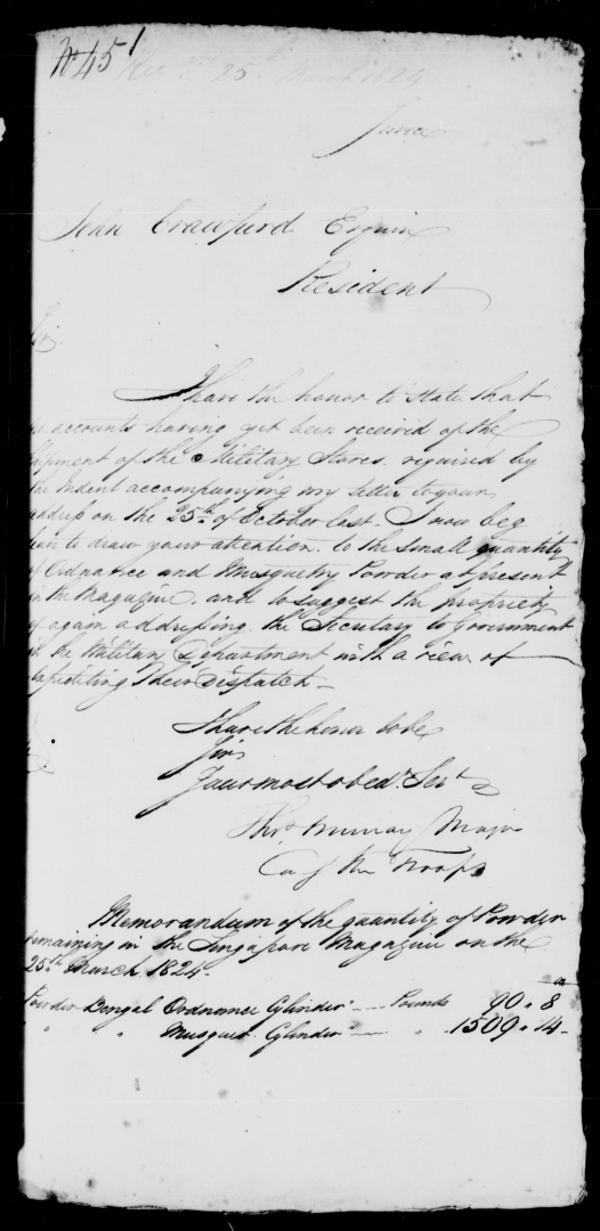 No 45
25th March 1824
John Crawfurd Esquire
Resident
Sir,
I have the honor to state that
no accounts having yet been received of the
shipment of the Military Stores required by
the Indent accompanying my letter to your
address on the 25th of October last. I now beg
to draw your attention to the small quantity
of Ordnance and Musquetry Powder at present
in the Magazine, and to suggest the propriety
of again addressing the Secretary to Government
in the Military Department with a view of
expediting their dispatch –
I have the honor to be
Sir,
Your most obedt. Servt
Thos Murray Major
Cg the Troops
Memorandum of the quantity of Powder
remaining in the Singapore Magazine on the
25th March 1824 –
Powder Bengal Ordnance Cylinder – Pounds 90 " 8
" " Musquet Cylinder – " 1509 " 14 –